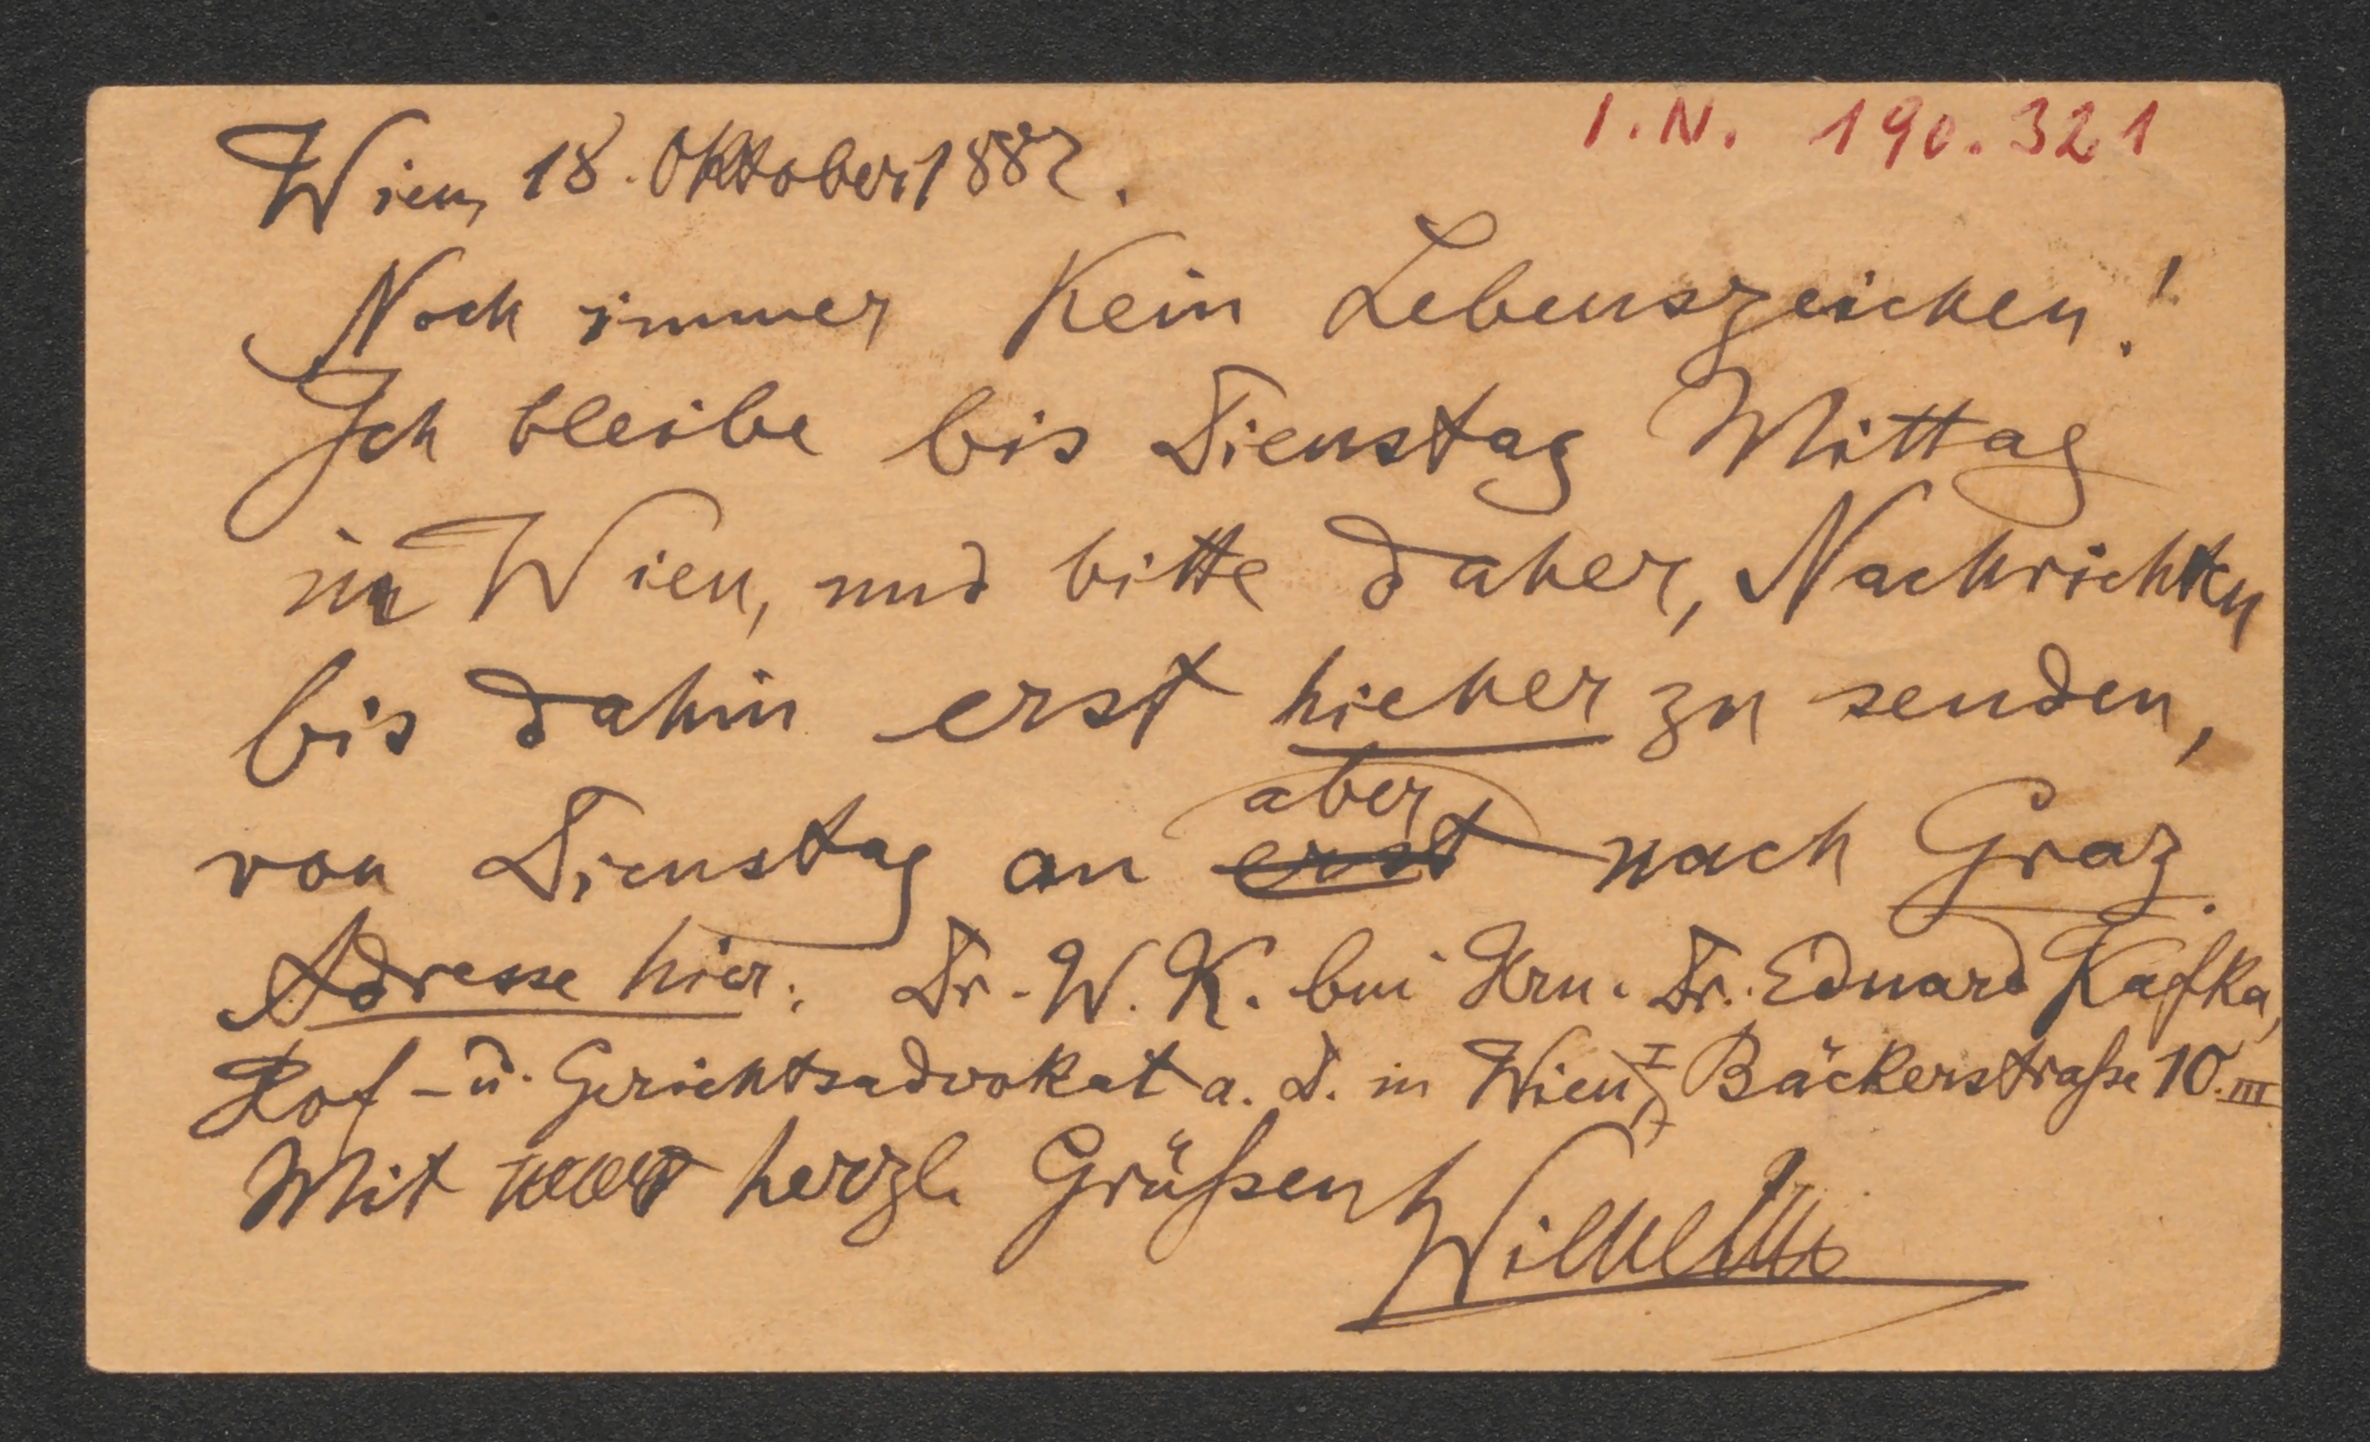 I.N. 190.321
Wien, 18. Oktober 1882.
Noch immer kein Lebenszeichen!
Ich bleibe bis Dienstag Mittag
in Wien, und bitte daher, Nachrichten
bis dahin erst hieher zu senden,
aber
von Dienstag an erst nach Graz.
Adresse hier: Dr. W. K. bei Hrn. Dr. Eduard Kafka,
Hof- u. Gerichtsadvokat a. D. in Wien, I Bäckerstraße 10. III
Mit herzl. Grüßen
Wilhelm